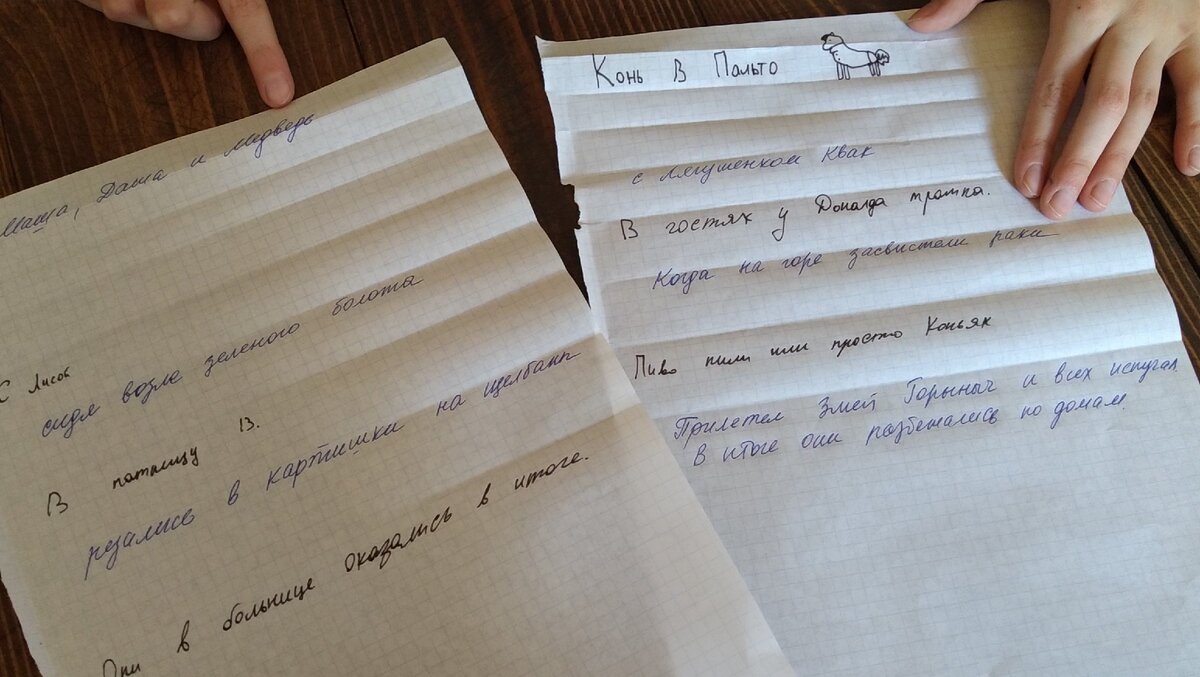 Маша, Даша и медведь
С лисой
сидя возле зеленого болота
В пятницу 13.
резались в картишки на щелбаны
Они в больнице оказались в итоге.
Конь в Пальто
с лягушенком Квак
В гостях у Дональда трампа.
Когда на горе засвистели раки
Пиво пили или просто Коньяк
Прилетел Змей Горыныч и всех испугал
В итоге они разбежались по домам.